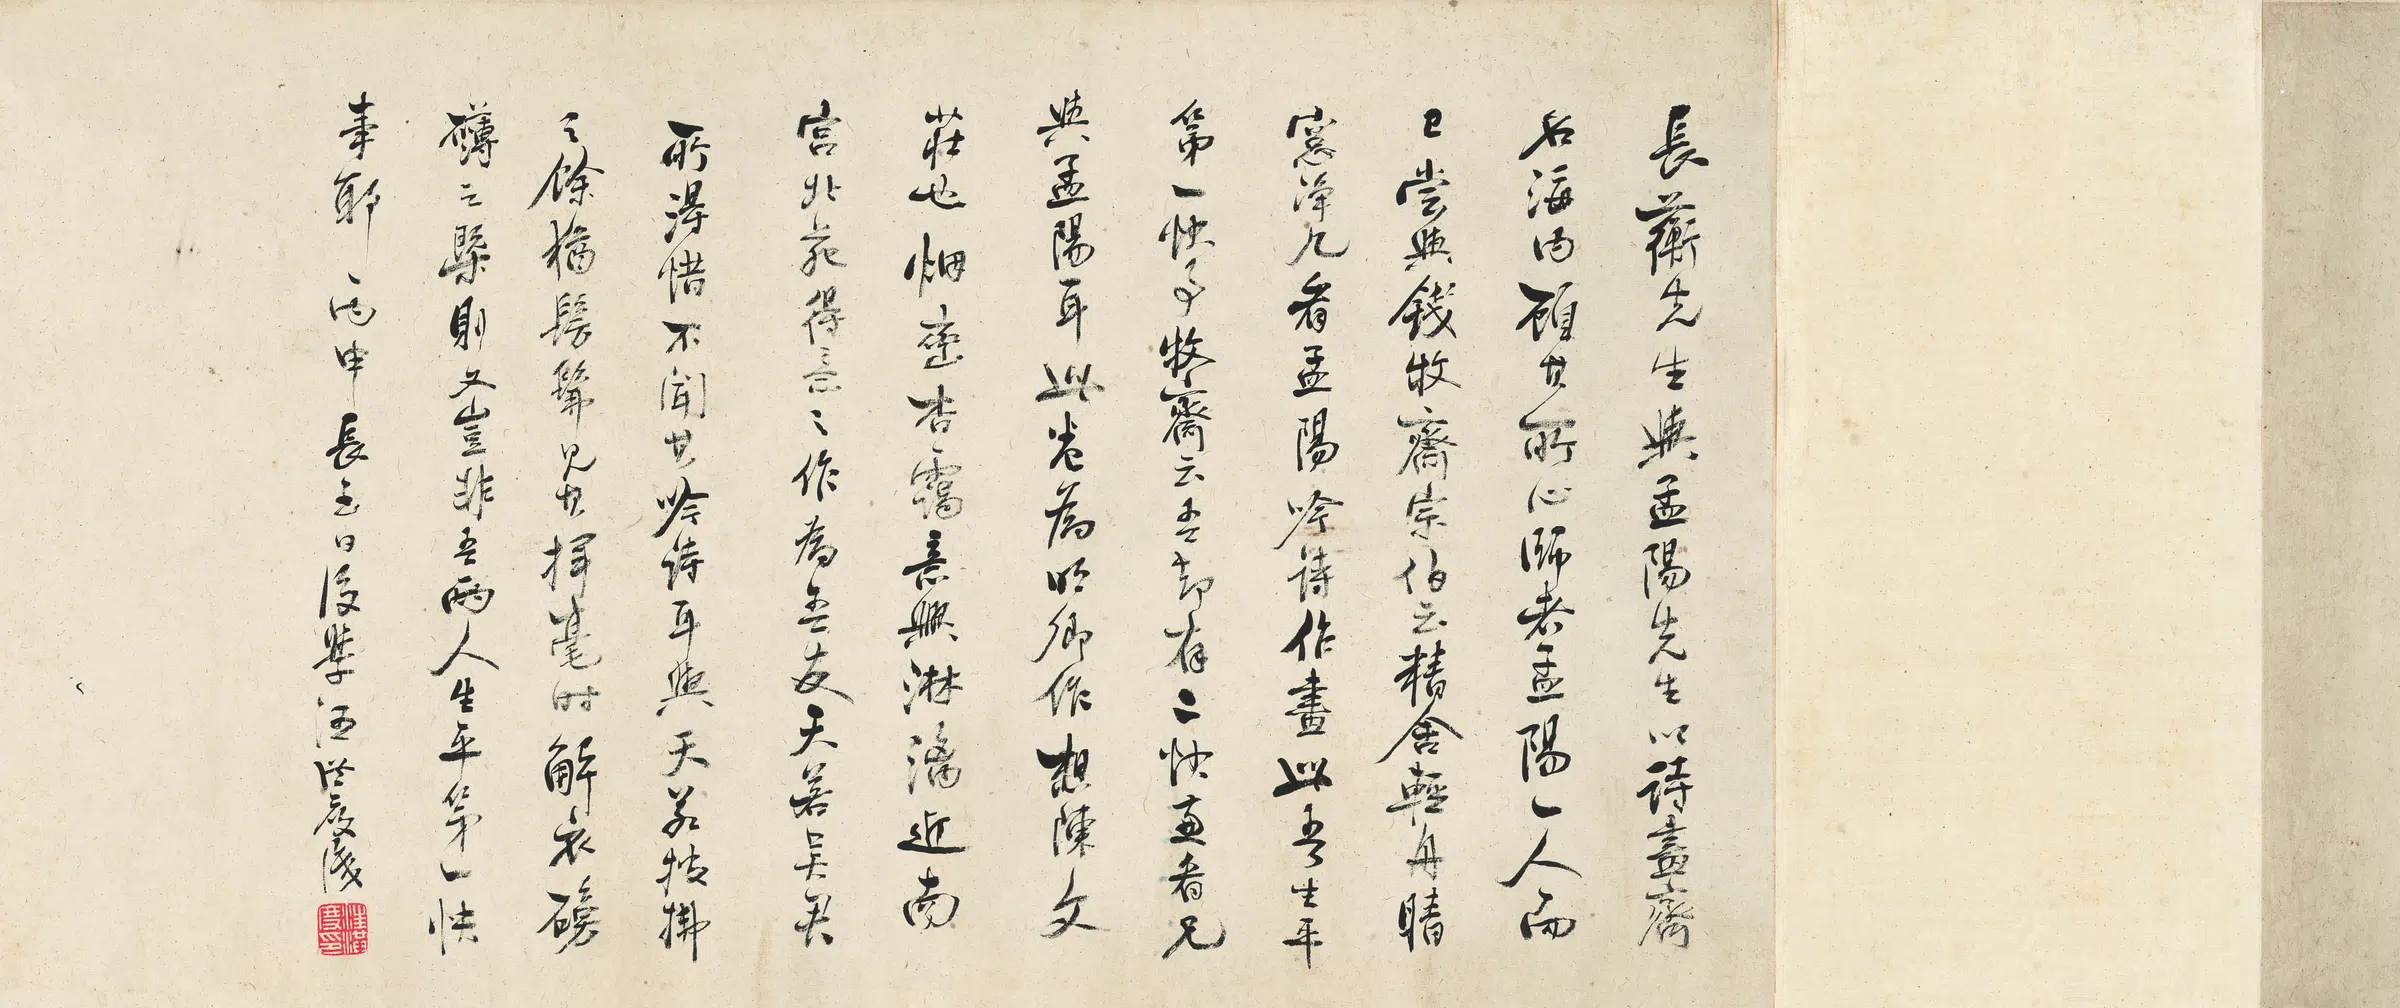 長蘅先生與孟陽先生以詩畫齊
名海內顧其所心師者孟陽一人而
已嘗與錢牧齋宗伯云精舍輕舟晴
窓淨几看孟陽吟詩作畫此吾生平
第一快事牧齋云吾却有二快兼看兄
與孟陽耳此卷為明卿作想陳文
莊也烟巒杏靄意興淋漓近南
宮北苑得意之作為吾友天若吳君
所得惜不聞其吟詩耳與天若披拂
之餘猶髣髴見其揮毫時解衣磅
礴之槩則又豈非吾兩人生平第一快
事耶丙申長至日後學汪洪度識
汪洪度印